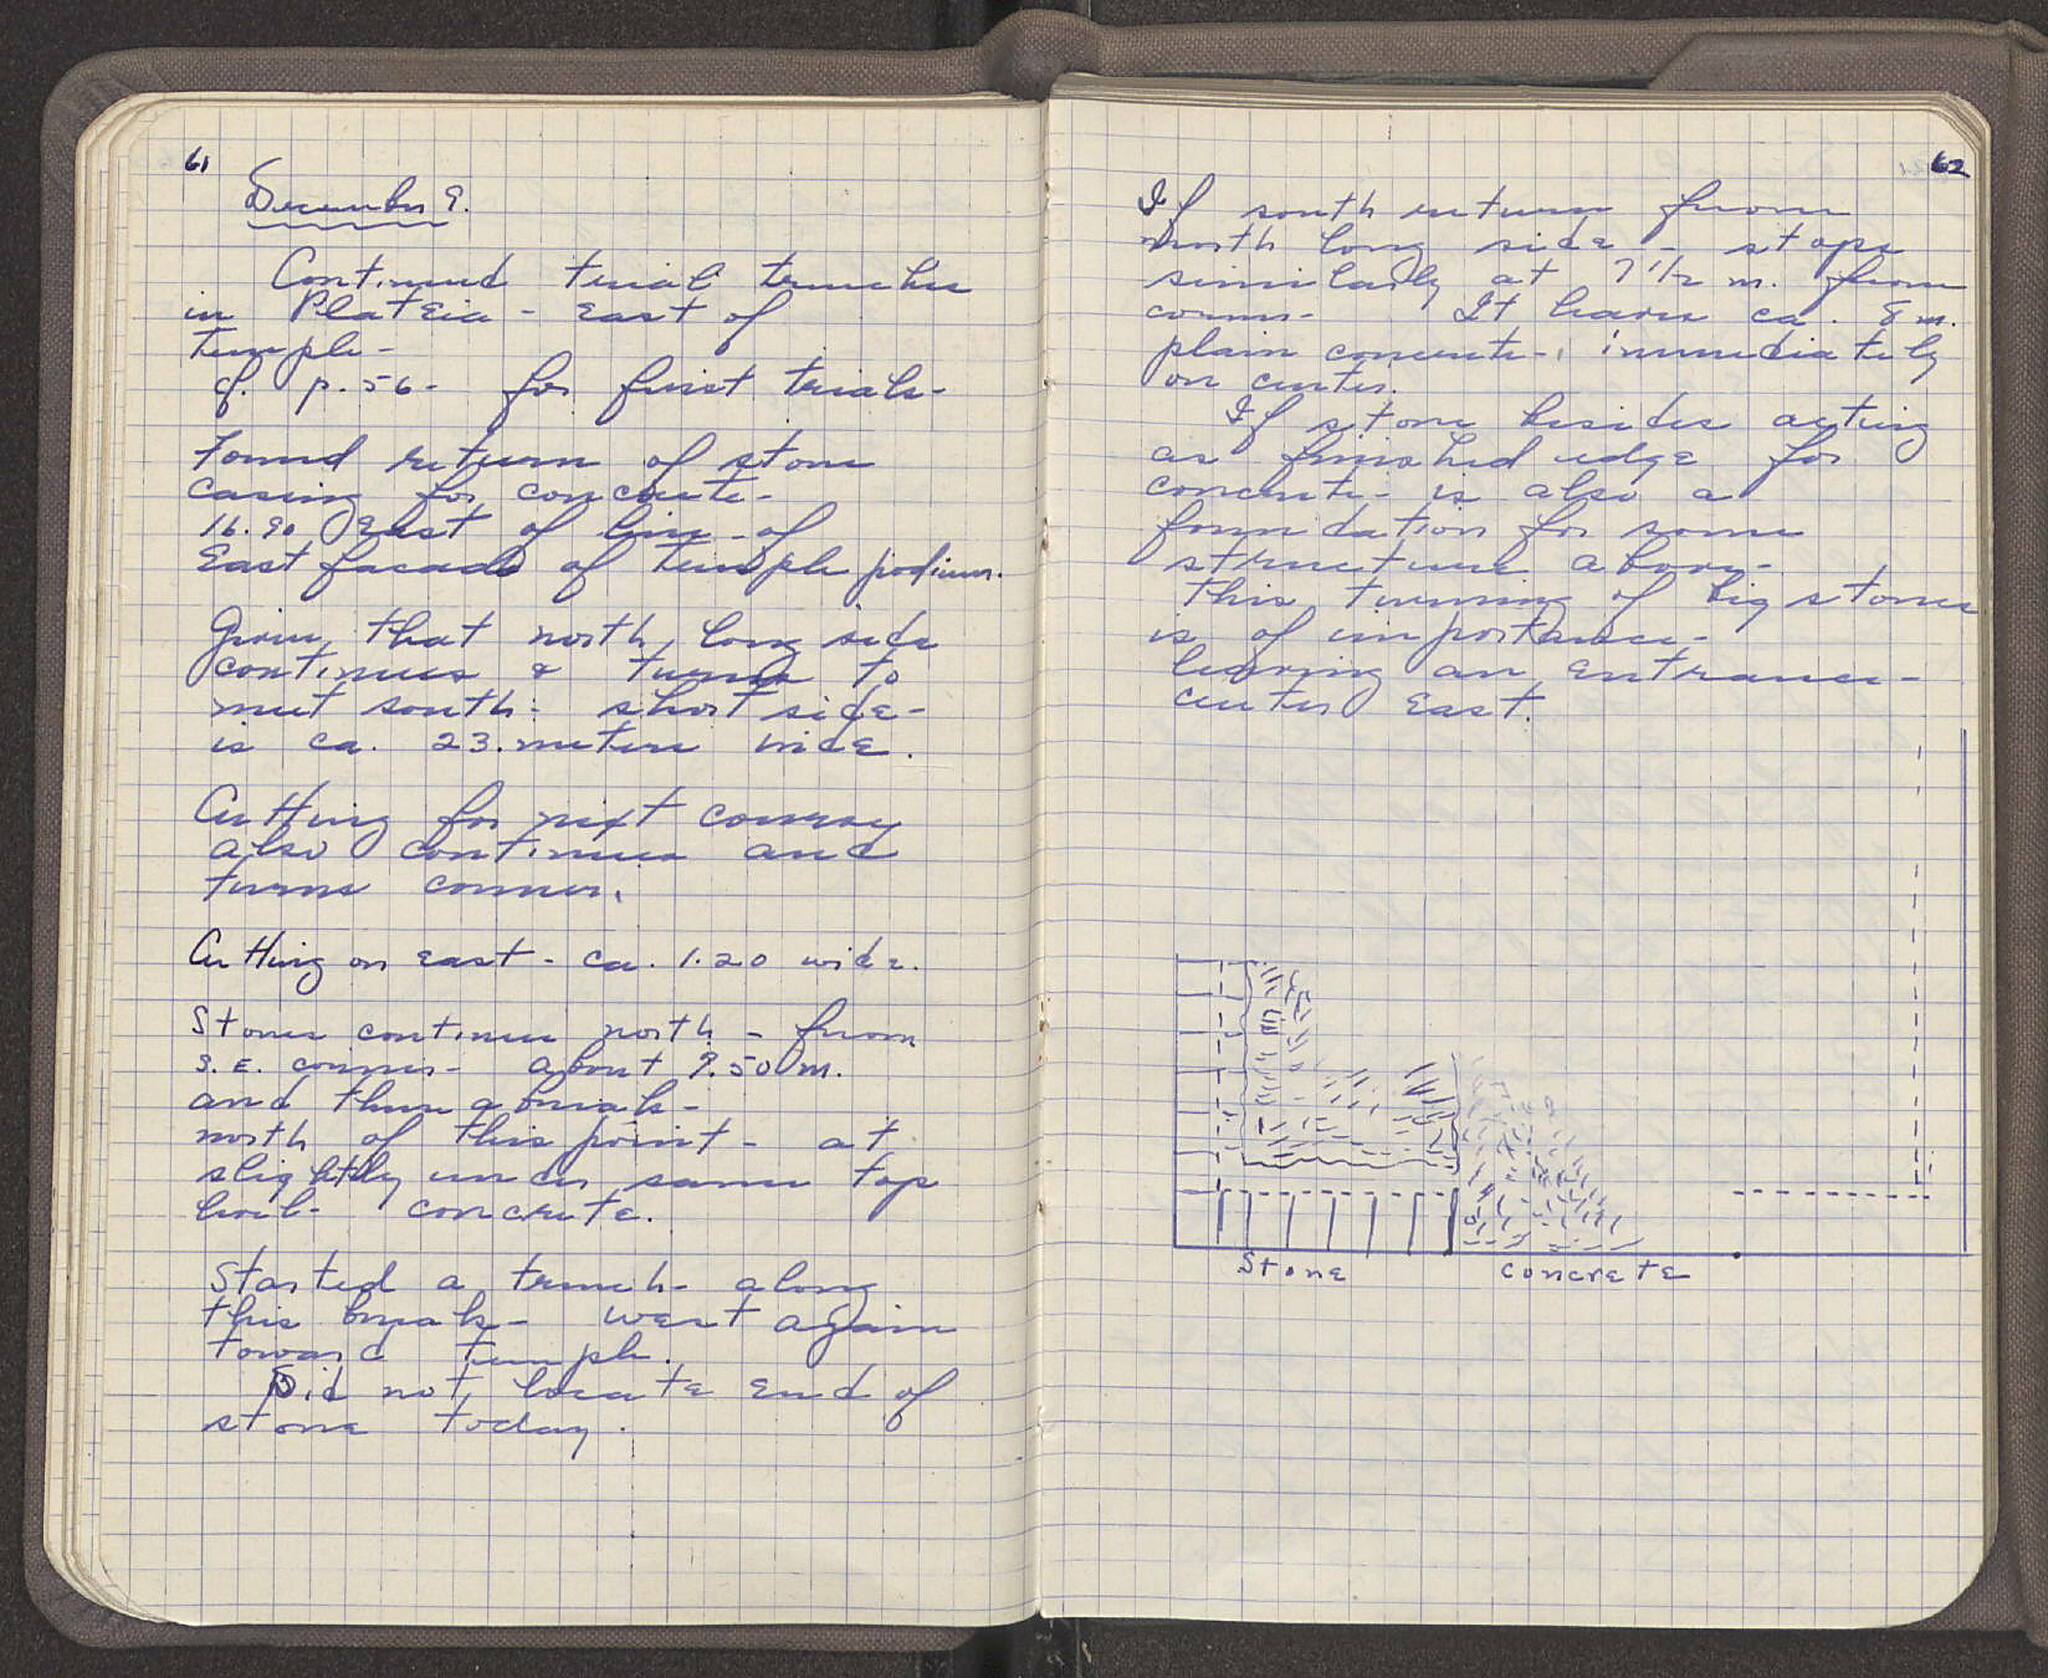 61
December 9.
Continued trial trenches
in Plateia - East of
Temple -
cf. p. 56 - for first trials -
Found return of stone
casing for concrete -
16.90 East of line - of
East facade of temple podium.
Given that north long side
continues & turns to
meet south - short side -
is ca. 23. meters wide.
Cutting for next course
also continues and
turns corner.
Cutting on east - ca. 1.20 wide.
Stones continue north - from
S.E. corner - about 7.50 m.
and then a break -
north of this point - at
slightly under same top
level - concrete.
Started a trench - along
this break - west again
toward temple.
Did not locate end of
stone today.
62
If south return from
north long side - stops
similarly at 7 1/2 m. from
corner - It leaves ca. 8 m.
plain concrete - immediately
on center.
If stone besides acting
as finished edge for
concrete - is also a
foundation for some
structure above -
this turning of big stones
is of importance -
leaving an entrance -
center East.
Stone concrete